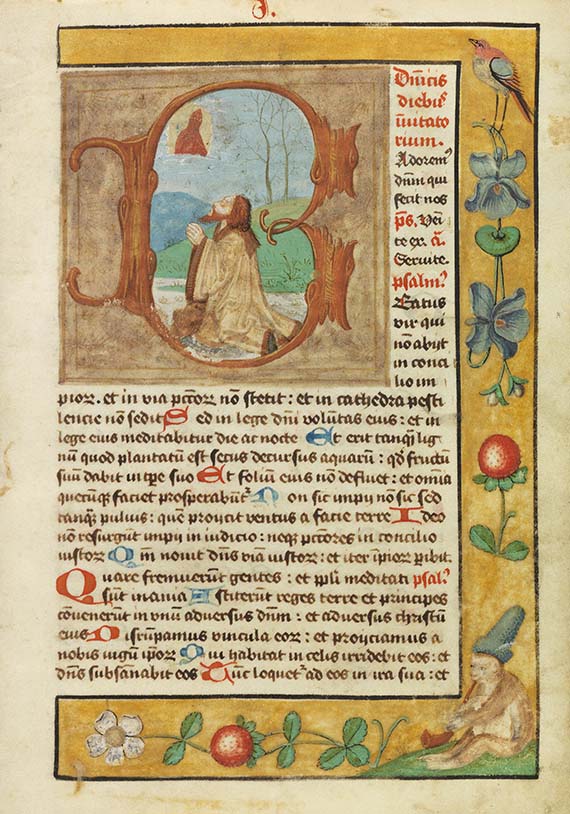 J.
B
Dn̄icis
diebus
īuitato
rium.
Adorem᷒
dn̄m qui
fecit nos
p̄s. Veni
te ex. a̅.
Seruite.
psalm᷒
Eatus
vir qui
nō abijt
in conci
lio im
pior. et in via pctōꝝ nō stetit : et in cathedra pesti
lencie nō sedit Sed in lege dn̄i volūtas eius : et in
lege eius meditabitur die ac nocte Et erit tanqͣ lig
nū quod plantatū est secus decursus aquarū : qd̄ fructū
suū dabit in tp̄e suo Et foliū eius nō defluet : et omia
quecūqꝫ faciet prosperabūt᷑ Non sic impij nō sic sed
tanqͣ puluis : quē proycit ventus a facie terre Ideo
nō resurgūt impij in iudicio : neqꝫ pctōres in concilio
iustoꝝ Qm̄ nouit dn̄s viā iustoꝝ : et iter īpioꝝ ꝑibit.
Quare fremuerūt gentes : et ppl̄i meditati psal᷒
sūt inania Astiterūt reges terre et principes
cōuenerūt in vnū aduersus dn̄m : et aduersus christū
eius Disrūpamus vincula eoꝝ : et proyciamus a
nobis iugū ip̄oꝝ Qui habitat in celis irridebit eos : et
dn̄s subsānabit eos Tūc loquet᷑ ad eos in ira sua : et